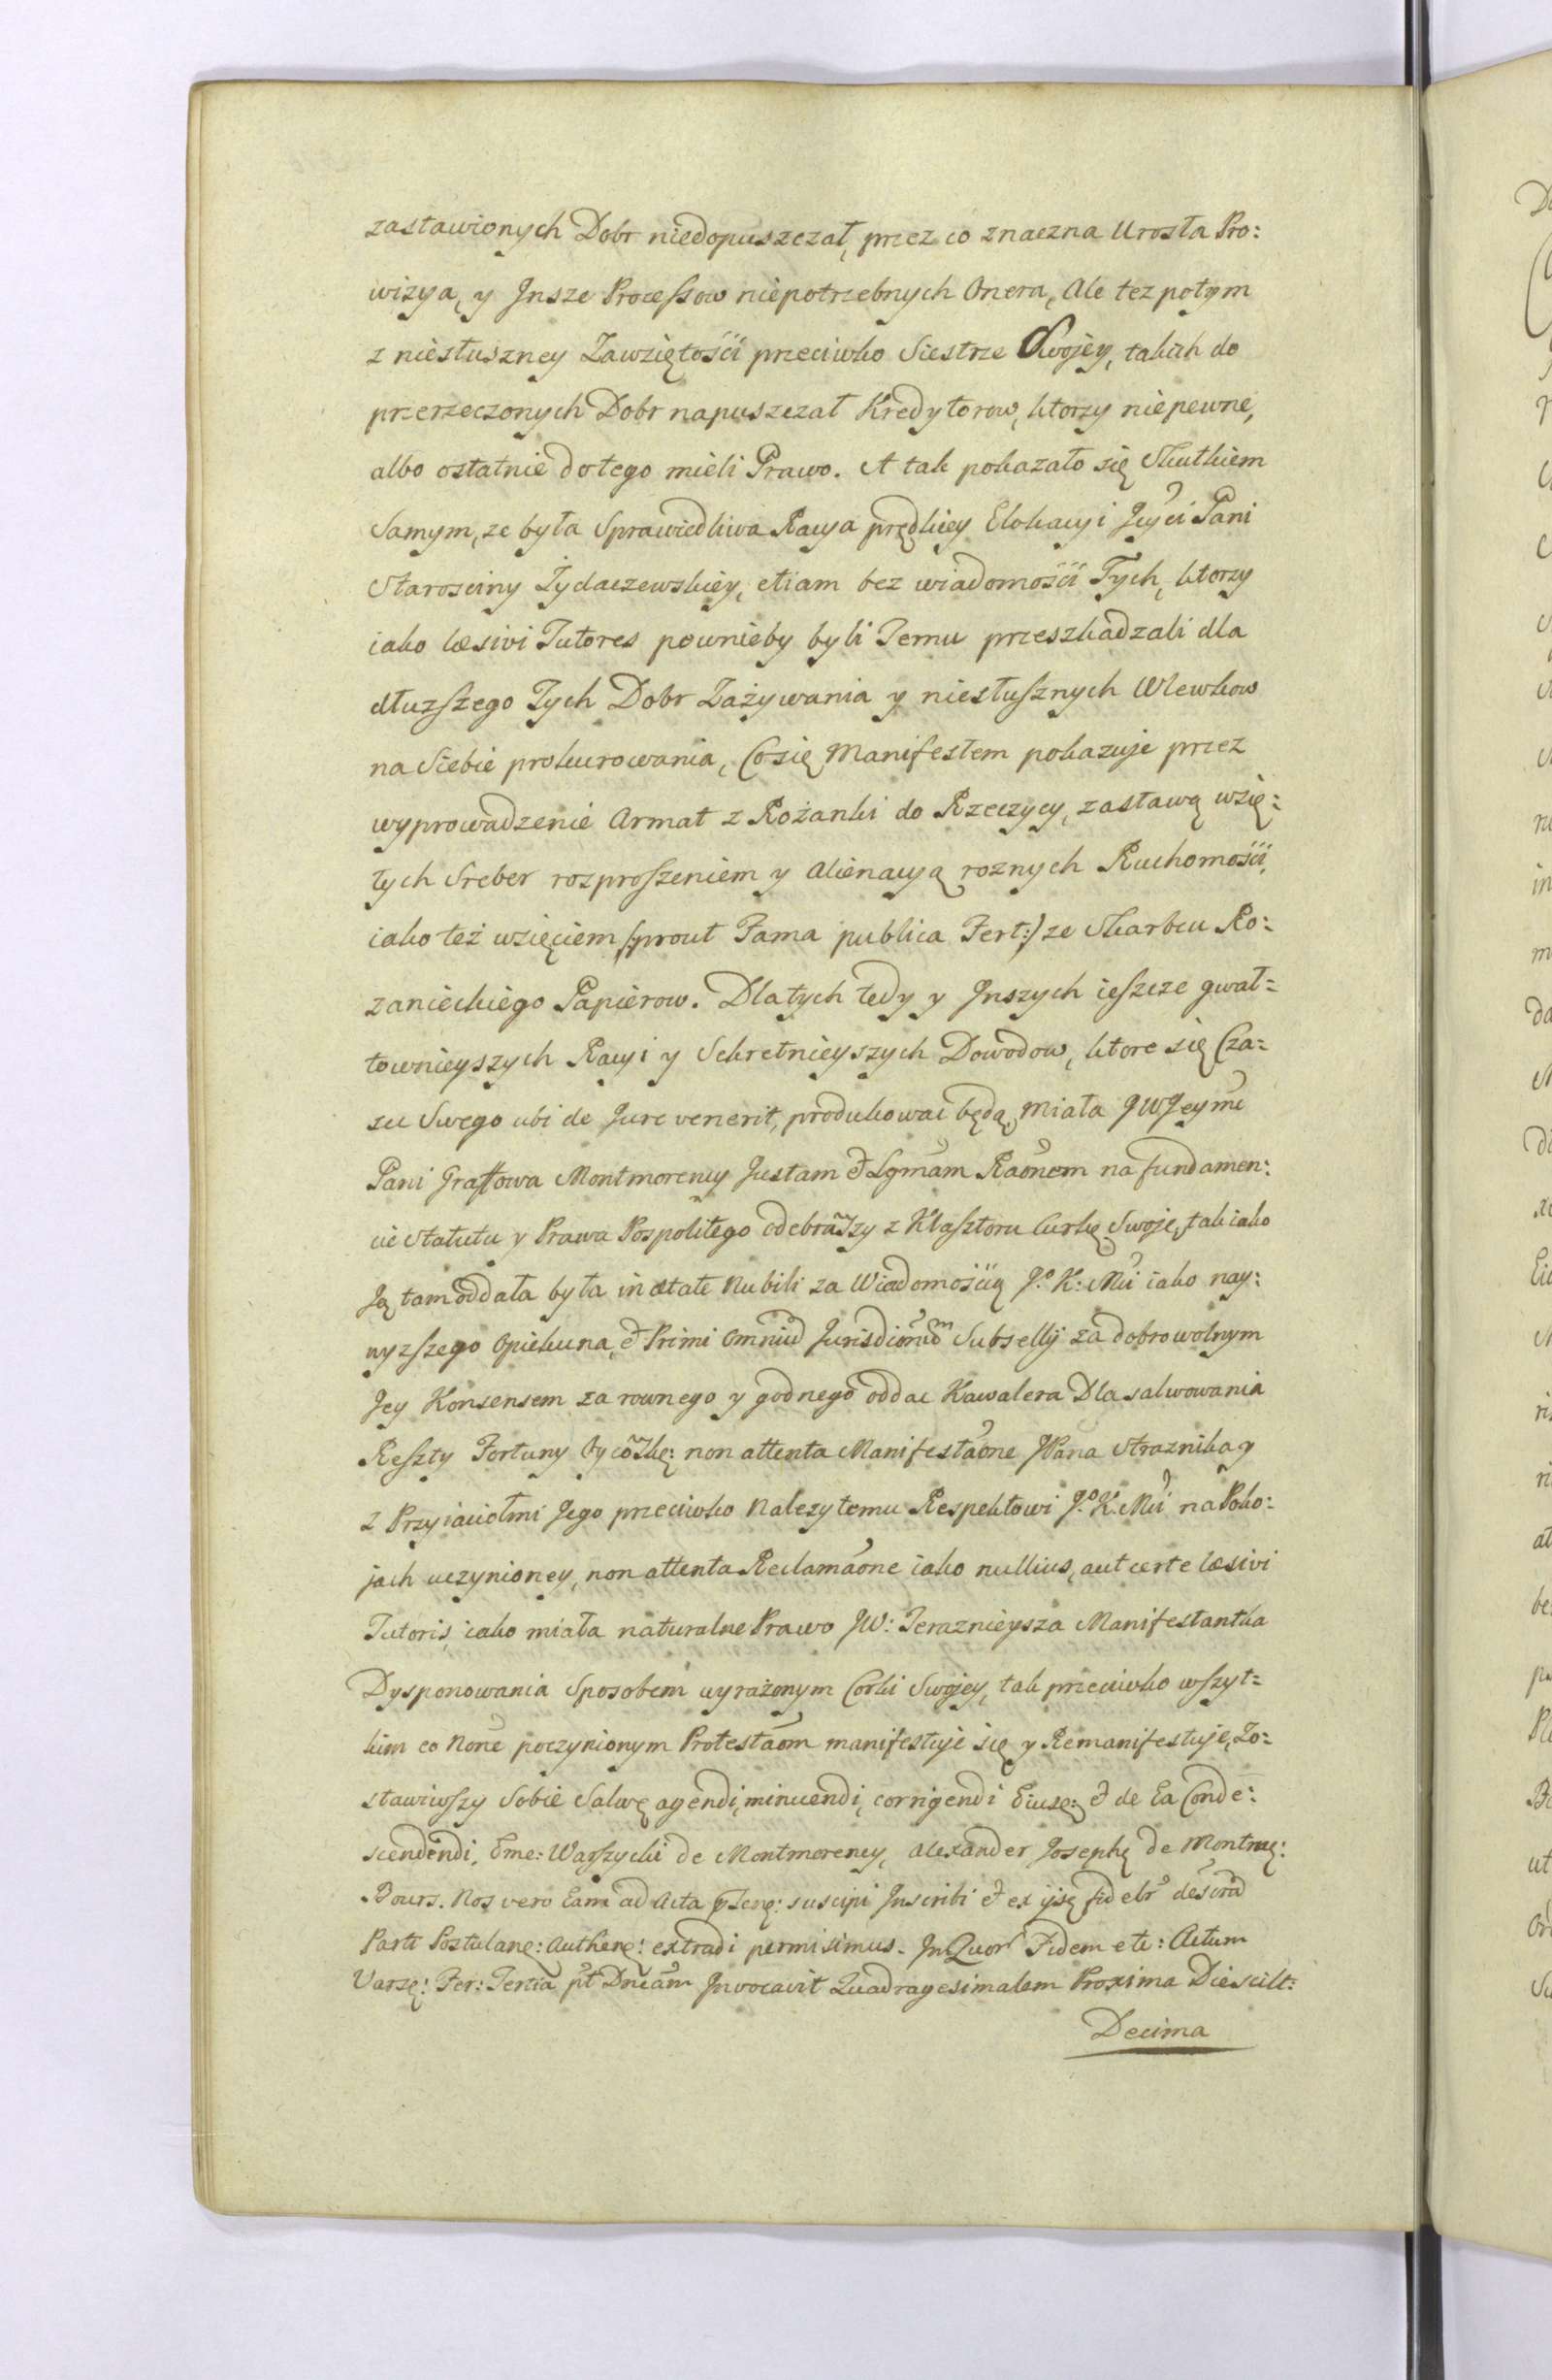 zastawionych Dobr niedopuszczał, przez co znaczna Urosła Pro:
wizya, y Jnsze Processow niepotrzebnych Onera, Ale tez potym
z niesłuszney Zawziętości przeciwko Siestrze Swojey, takich do
przerzeczonych Dobr napuszczał Kredytorow, ktorzy niepewne,
albo ostatnie do tego mieli Prawo. A tak pokazało się Skutkiem
Samym, ze była Sprawiedliwa Racya prędkiey Elokacyi Jeyci Pani
Starosciny Żydaczewskiey, etiam bez wiadomości Tych, ktorzy
iako læsivi Tutores pewnieby byli Temu przeszkadzali dla
dłuzszego Tych Dobr Zażywania y niesłusznych Wlewkow
na Siebie prokurowania, Co się Manifestem pokazuje przez
wyprowadzenie Armat z Rożanki do Rzeczycy, zastawą wzię:
tych Sreber rozproszeniem y alienacyą roznych Ruchomości,
iako też wzięciem (prout Fama publica Fert:) ze Skarbcu Ro:
zanieckiego Papierow. Dla tych tedy y Jnszych ieszcze gwał=
townieyszych Racyi y Sekretnieyszych Dowodow, ktore się Cza=
su Swego ubi de Jure venerit, produkować będą, miała JWJeymć
Pani Graffowa Montmorency Justam et Lgmam Raonem na fundamen:
cie Statutu y Prawa Pospolitego odebrawszy z Klasztoru Curkę Swoję, tak iako
Ją tam oddała była in ætate Nubili za Wiadomością J.o K: Mci iako nay:
wyzszego Opiekuna, et Primi Omnium Jurisdionum Subsellij za dobrowolnym
Jey Konsensem za rownego y godnego oddać Kawalera Dla salwowania
Reszty Fortuny Oycowskę: non attenta Manifestaone JPana Straznika y
z Przyiaciołmi Jego przeciwko Nalezytemu Respektowi J.o K. Mci na Poko:
jach uczynioney, non attenta Reclamaone iako nullius, aut certe læsivi
Tutoris, iako miała naturalne Prawo JW: Teraznieysza Manifestantka
Dysponowania Sposobem wyrażonym Corki Swojey, tak przeciwko wszyt=
kim eo Noñe poczynionym Protestaom manifestuje się y Remanifestuje, Zo=
stawiwszy Sobie Salwę agendi, minuendi, corrigendi Eiusę: et de Ea Conde:
scendendi. Eme: Warszycki de Montmorency, Alexander Josephę de Montmę:
Bours. Nos vero Eam ad Acta suscipi Jnscribi et ex ijsę fidelr descrd
Parti Postulanę: Authenę: extradi permisimus. Jn Quor Fidem etc: Actum
Varsę: Fer: Tertia pt Dnicam Jnvocavit Quadragesimalem Proxima Die scilt:
Decima